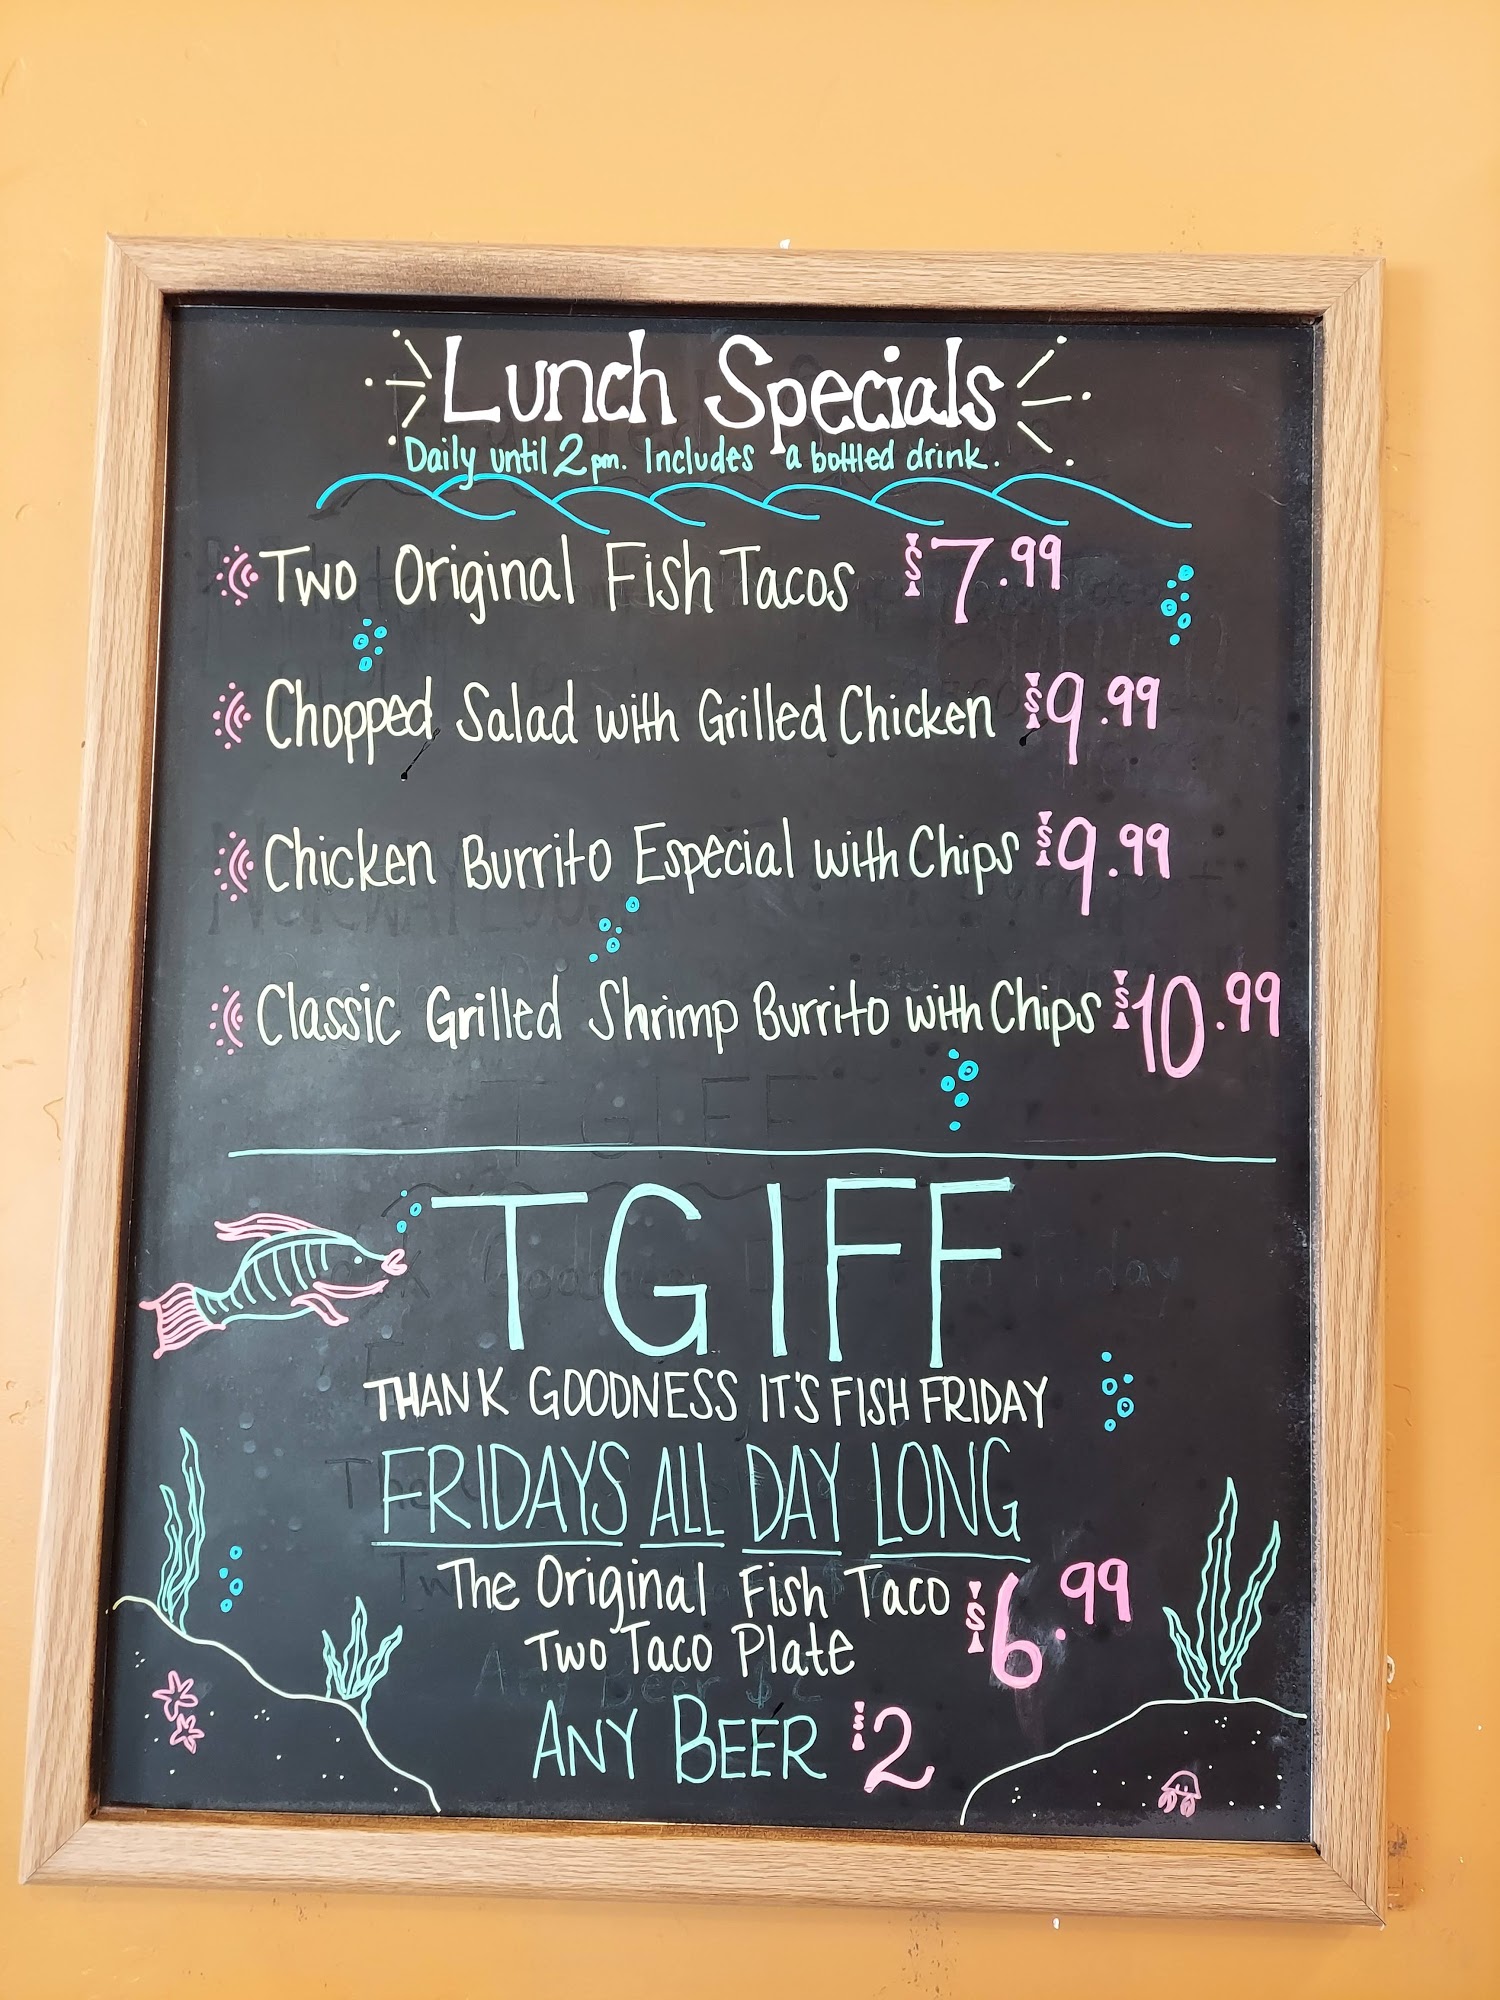 Lunch Specials
Daily until 2pm. Includes a bottled drink.
Two Original Fish Tacos $7.99
Chopped Salad with Grilled Chicken $9.99
Chicken Burrito Especial with Chips $9.99
Classic Grilled Shrimp Burrito with Chips $10.99
TGIFF
THANK GOODNESS IT'S FISH FRIDAY
FRIDAYS ALL DAY LONG
The Original Fish Taco $6.99
Two Taco Plate
ANY BEER $2